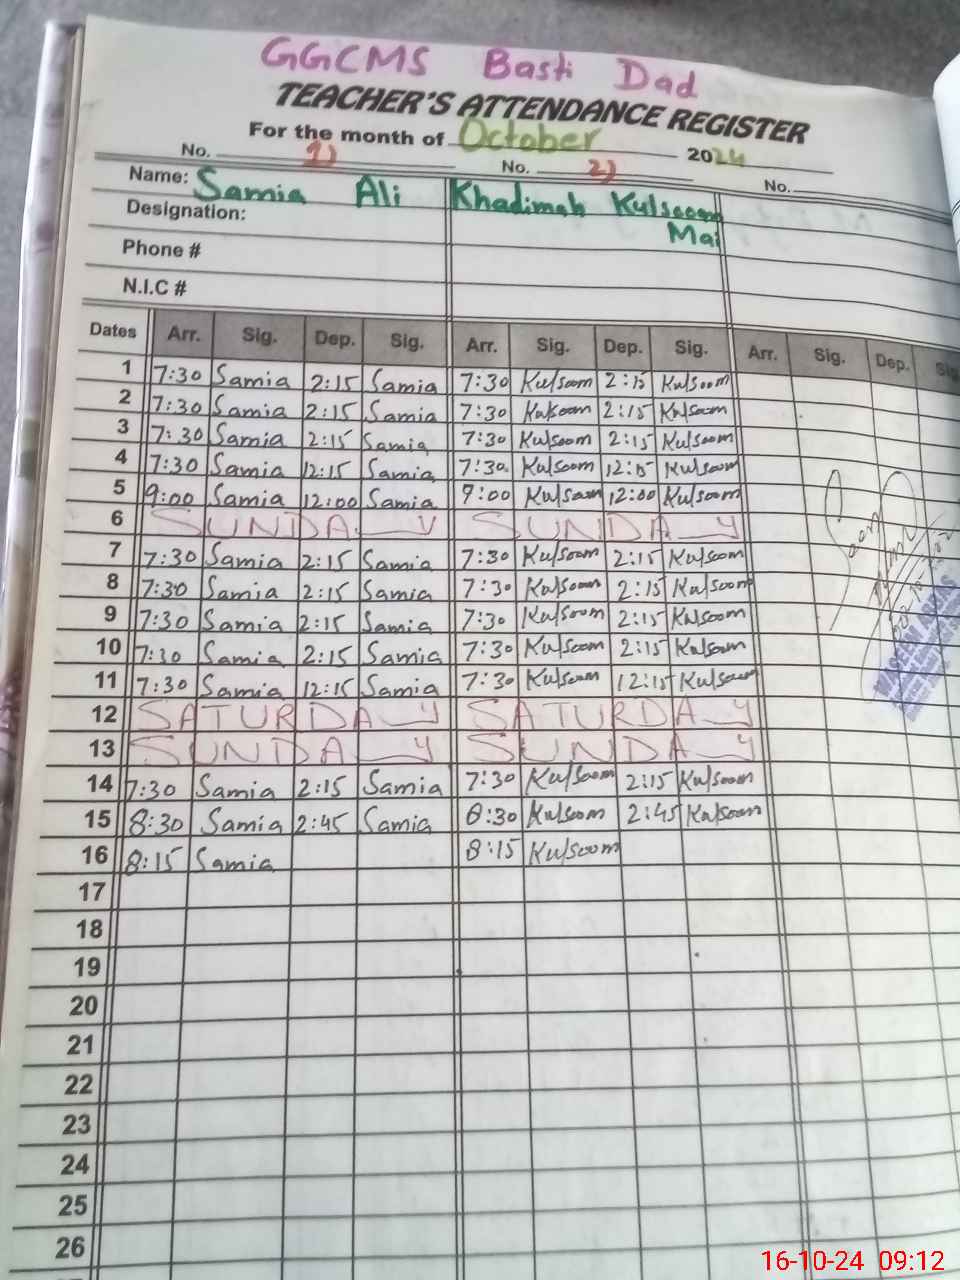 GGCMS Basti Dad
TEACHER'S ATTENDANCE REGISTER
For the month of October 2024
No. 1) No. 2) No.
Name: Samia Ali Khadimah Kulsoom
Mai
Designation:
Phone #
N.I.C #
Dates Arr. Sig. Dep. Sig. Arr. Sig. Dep. Sig. Arr. Sig. Dep. Sig
1 7:30 Samia 2:15 Samia 7:30 Kulsoom 2:15 Kulsoom
2 7:30 Samia 2:15 Samia 7:30 Kulsoom 2:15 Kulsoom
3 7:30 Samia 2:15 Samia 7:30 Kulsoom 2:15 Kulsoom
4 7:30 Samia 12:15 Samia 7:30 Kulsoom 12:15 Kulsoom
5 9:00 Samia 12:00 Samia 9:00 Kulsoom 12:00 Kulsoom
6 SUNDAY SUNDAY
7 7:30 Samia 2:15 Samia 7:30 Kulsoom 2:15 Kulsoom
8 7:30 Samia 2:15 Samia 7:30 Kulsoom 2:15 Kulsoom
9 7:30 Samia 2:15 Samia 7:30 Kulsoom 2:15 Kulsoom
10 7:30 Samia 2:15 Samia 7:30 Kulsoom 2:15 Kulsoom
11 7:30 Samia 12:15 Samia 7:30 Kulsoom 12:15 Kulsoom
12 SATURDAY SATURDAY
13 SUNDAY SUNDAY
14 7:30 Samia 2:15 Samia 7:30 Kulsoom 2:15 Kulsoom
15 8:30 Samia 2:45 Samia 8:30 Kulsoom 2:45 Kulsoom
16 8:15 Samia 8:15 Kulsoom
17
18
19
20
21
22
23
24
25
26
16-10-24 09:12